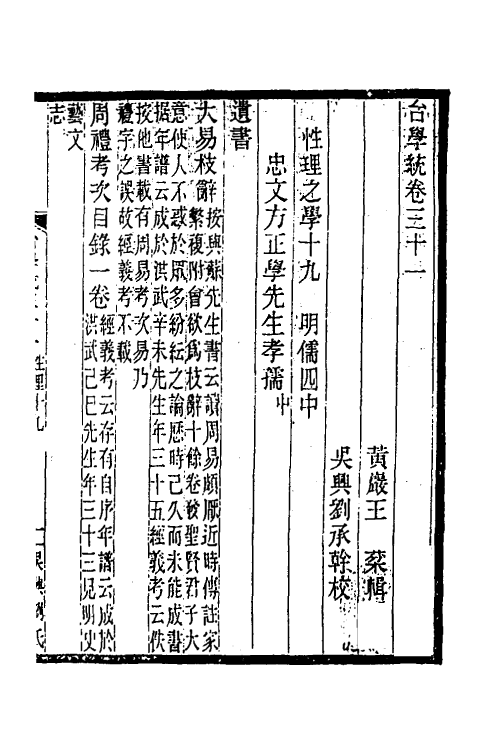 台學統卷三十一
黃巖王　棻輯
吳興劉承幹校
性理之學十九　明儒四中
忠文方正學先生孝孺中
遺書
大易枝辭按與蘇先生書云讀周易頗厭近時傳註家
繁複附會欲爲枝辭十餘卷發聖賢君子大
意使人不惑於眾多紛紜之論歷時已久而未能成書
据年譜云成於洪武辛未先生年三十五經義考云佚
按他書載有周易考次易乃
禮字之誤故經義考不載
周禮考次目錄一卷經義考云存有自序年譜云成於
洪武己巳先生年三十三見明史
藝文
志
性理十九
一